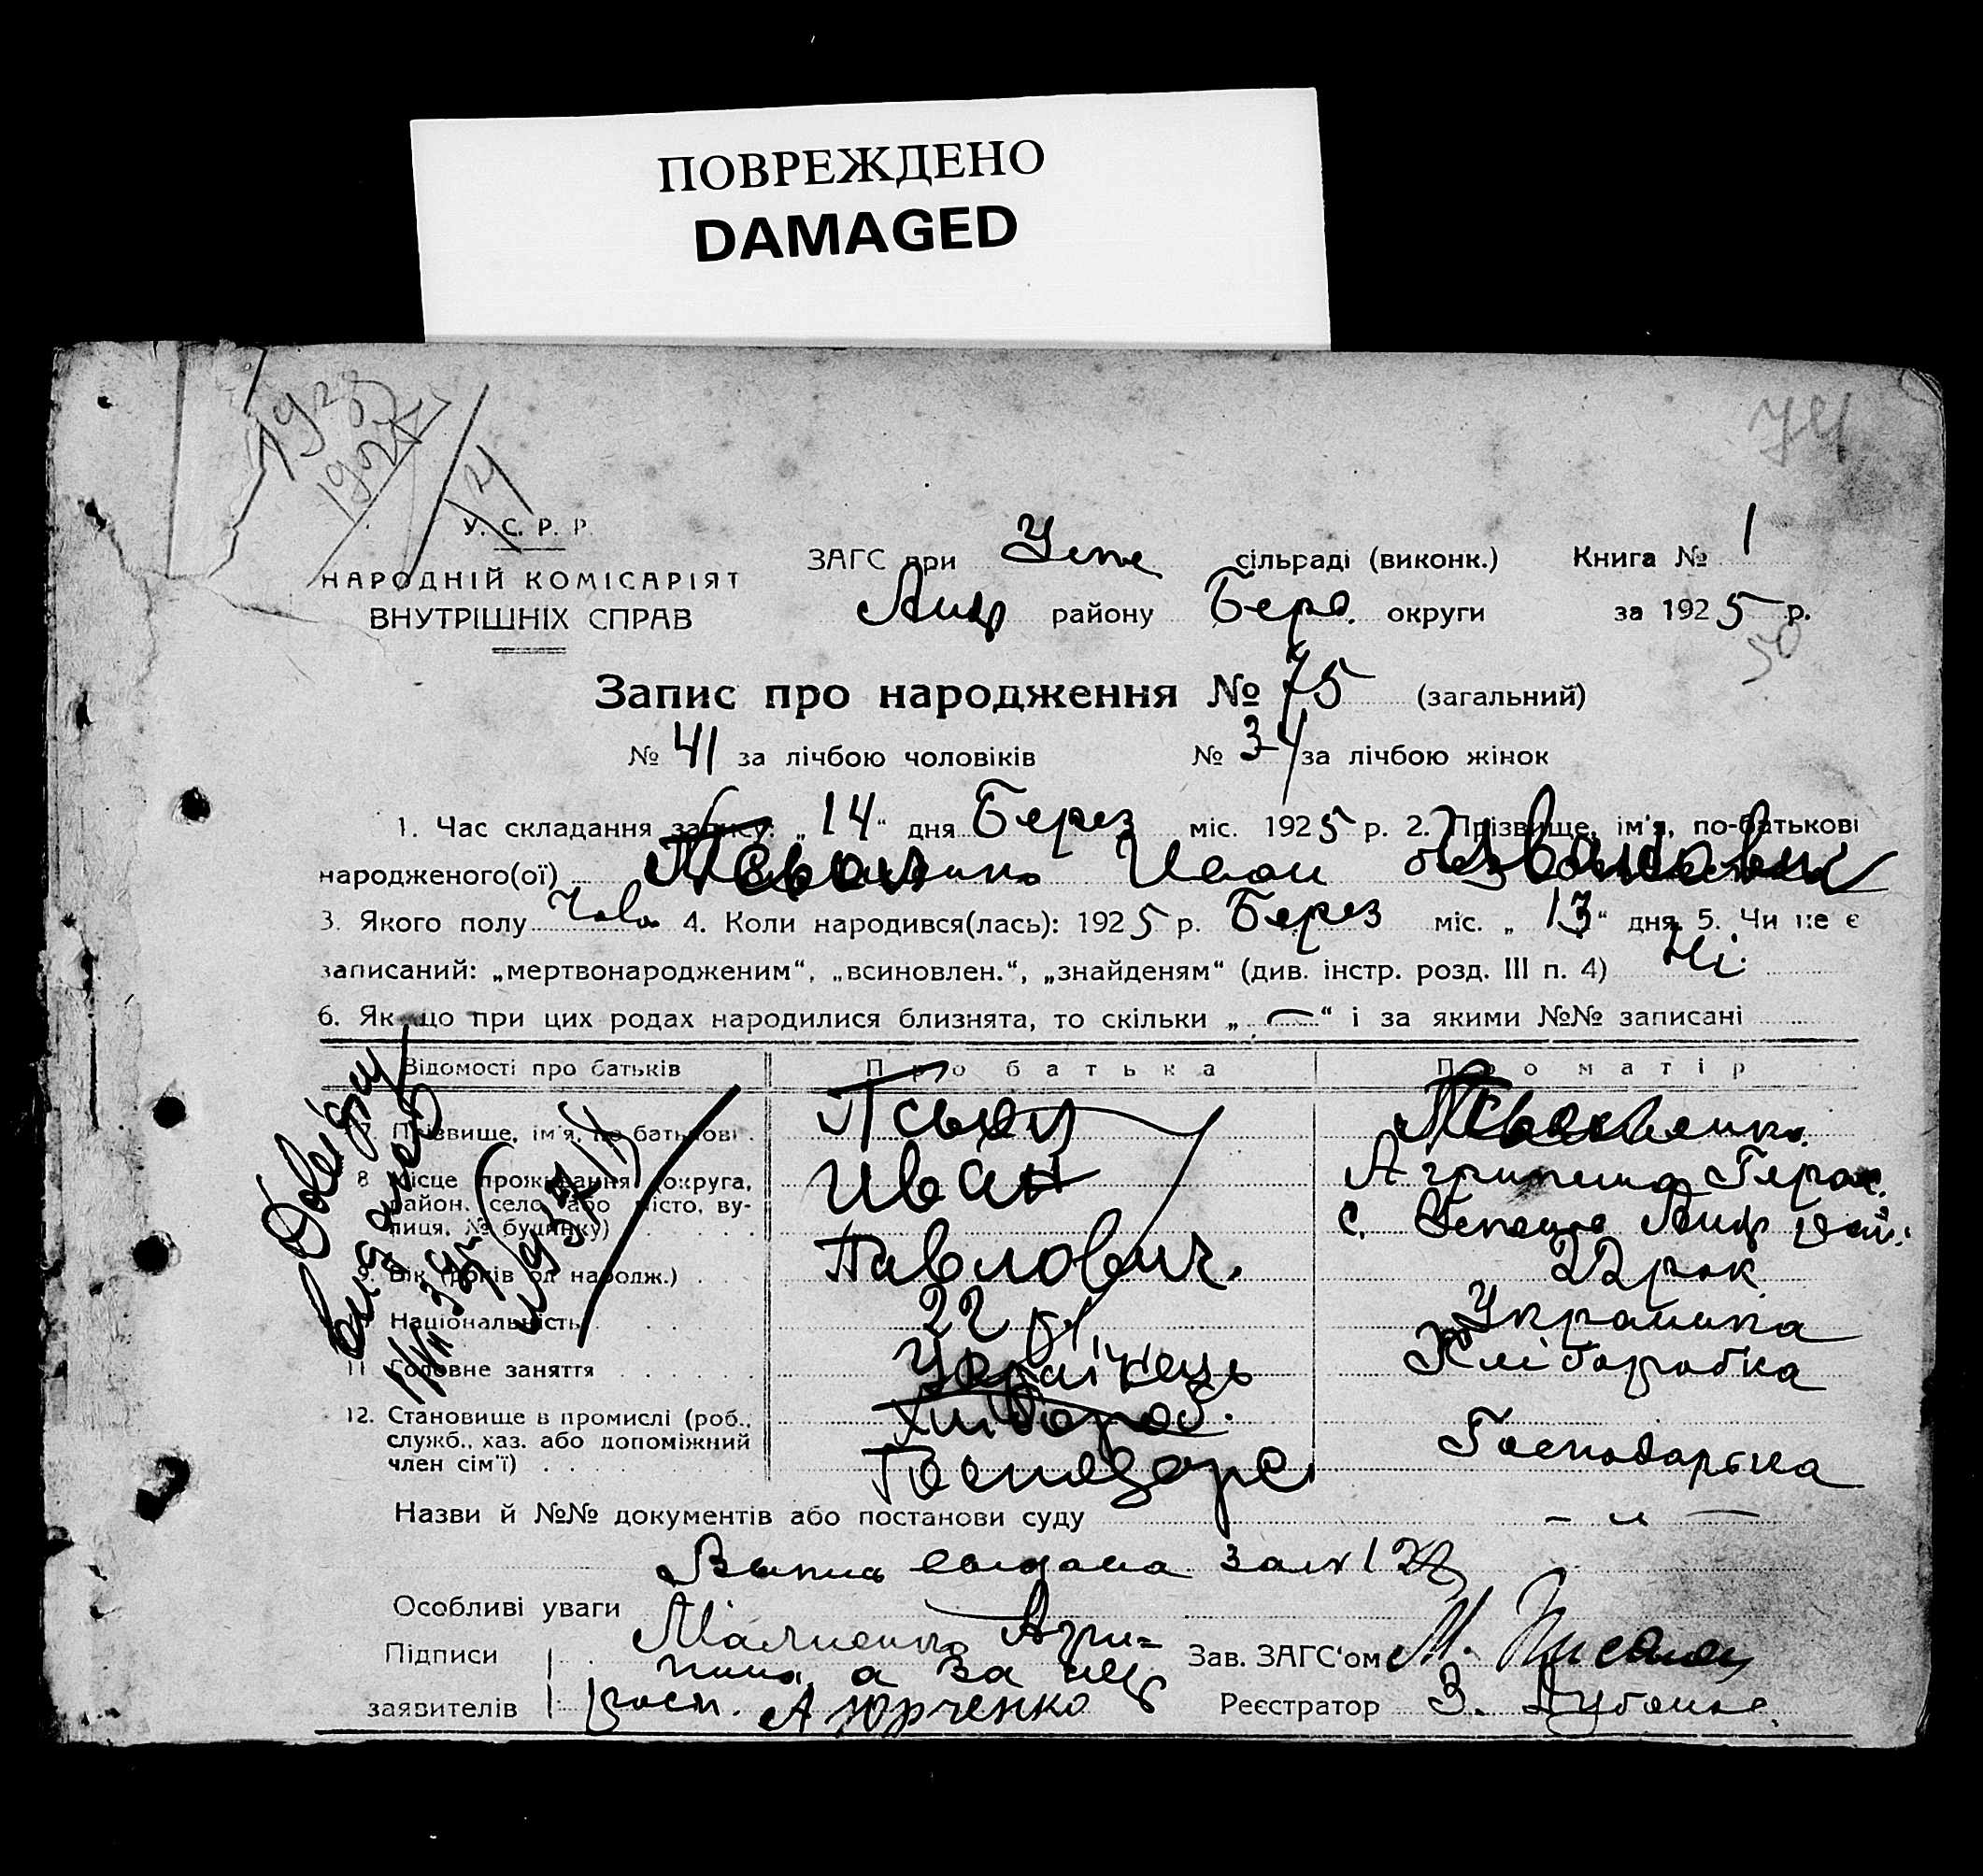 ПОВРЕЖДЕНО
DAMAGED
1925
74
У. С. Р. Р.
НАРОДНІЙ КОМІСАРІЯТ
ВНУТРІШНІХ СПРАВ
ЗАГС при Успе сільраді (виконк.) Книга № 1
району Берд. округи за 1925 р.
50
Запис про народження № 75 (загальний)
№ 41 за лічбою чоловіків № 34 за лічбою жінок
1. Час складання запису: „14“ дня Берез міс. 1925 р. 2. Прізвище, ім'я, по-батькові
народженого(ої) Иван Иванович
3. Якого полу Чолов 4. Коли народився(лась): 1925 р. Берез міс. „13“ дня. 5. Чи не є
записаний: „мертвонародженим“, „всиновлен.“, „знайденям“ (див. інстр. розд. III п. 4) Ні.
6. Якщо при цих родах народилися близнята, то скільки „—“ і за якими №№ записані
Відомості про батьків Про батька Про матір
7. Прізвище, ім'я, по батькові Псьол
Иван Агрипина Герас.
Павлович.
8. Місце проживання (округа, район, село або місто, вулиця, № будинку) с.
9. Вік (років од народж.) 22 р. 22 рок
10. Національність Українець Украинка
11. Головне заняття Хлібороб. Хліборобка
12. Становище в промислі (роб., служб., хаз. або допоміжний член сім'ї) Господарс. Господарька
Довідку
видано
Назви й №№ документів або постанови суду — „ —
Выпись выдана за №
Особливі уваги
Підписи Агри-
пина, а за неї
заявителів расп. А Юрченко
Зав. ЗАГС'ом М.
Реєстратор З.